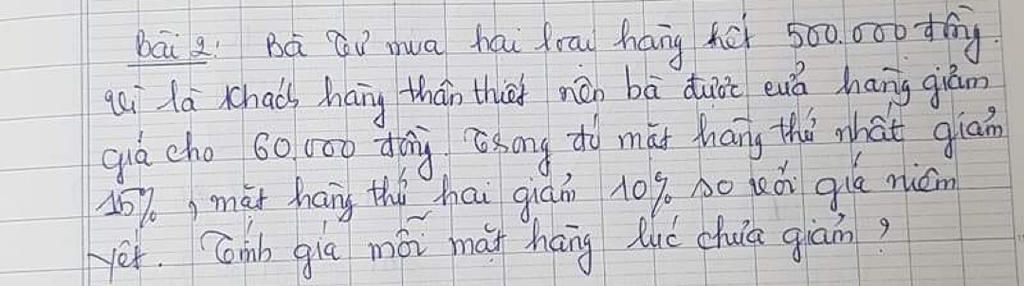 Bài 2: Bà Tư mua hai loại hàng hết 500.000 đồng.
Vì là khách hàng thân thiết nên bà được cửa hàng giảm
giá cho 60.000 đồng. Trong đó mặt hàng thứ nhất giảm
15%, mặt hàng thứ hai giảm 10% so với giá niêm
yết. Tính giá mỗi mặt hàng lúc chưa giảm?